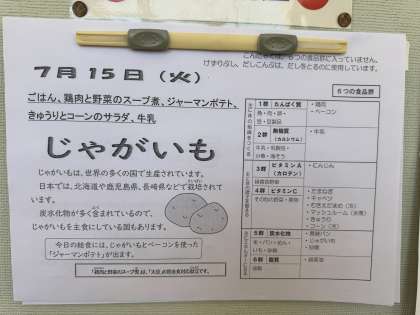 ７月１５日（火）
ごはん、鶏肉と野菜のスープ煮、ジャーマンポテト、
きゅうりとコーンのサラダ、牛乳
じゃがいも
じゃがいもは、世界の多くの国で生産されています。
日本では、北海道や鹿児島県、長崎県などで栽培されて
います。
炭水化物が多く含まれているので、
じゃがいもを主食にしている国もあります。
今日の給食には、じゃがいもとベーコンを使った
「ジャーマンポテト」が出ます。
６つの食品群に入っていません。
けずりぶし、だしこんぶは、だしをとるのに使用しています。
６つの食品群
１群 たんぱく質
魚・肉・卵・
豆・豆製品
・鶏肉
・ベーコン
２群 無機質
（カルシウム）
牛乳・乳製品・
小魚・海そう
・牛乳
３群 ビタミンA
（カロテン）
緑黄色野菜
・にんじん
４群 ビタミンC
その他の野菜・果物
・たまねぎ
・キャベツ
・むきえだまめ（冷）
・マッシュルーム（水煮）
・きゅうり
・コーン（冷）
５群 炭水化物
米・パン・めん・
いも・砂糖
・じゃがいも
・砂糖
６群 脂質
油脂